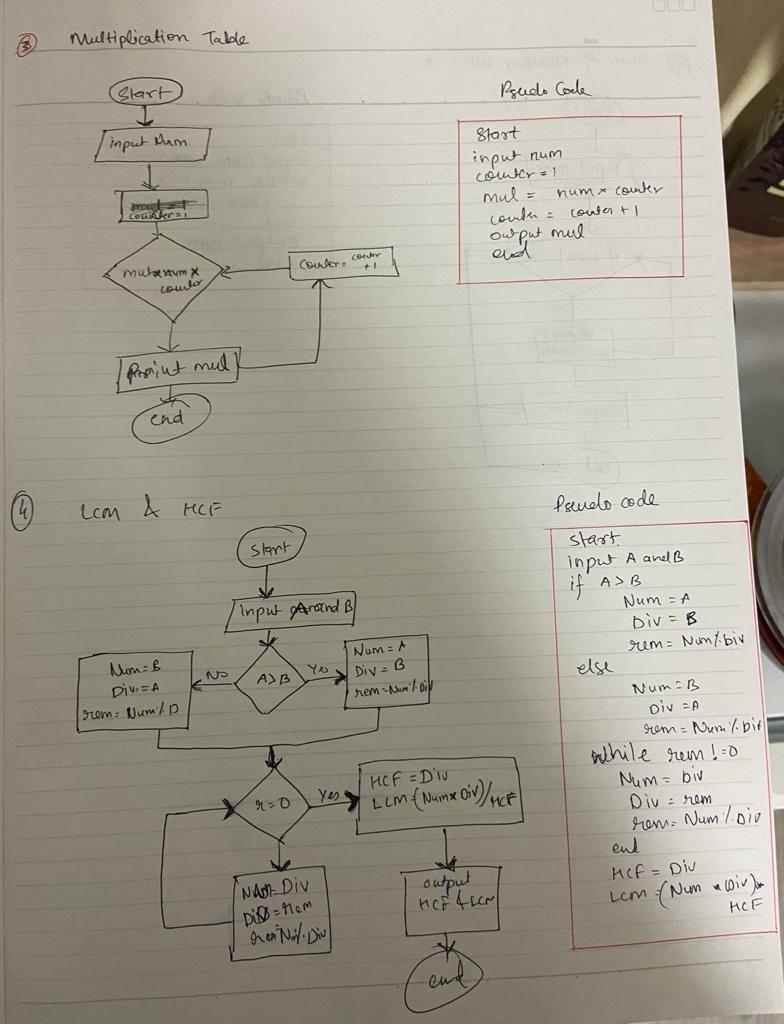 3 Multiplication Table
Start
input Num
counter=1
mul=num*
counter
counter= counter
+1
Print mul
end
Pseudo Code
Start
input num
counter = 1
mul = num * counter
counter = counter + 1
output mul
end
4 LCM & HCF
Start
Input A and B
A>B
No
Yes
Num=B
Div=A
rem= Num % D
Num = A
Div = B
rem=Num % Div
r=0
Yes
HCF = Div
LCM = (Num*Div)/HCF
Num=Div
Div=rem
rem=N % Div
output
HCF & LCM
end
Pseudo code
Start
input A and B
if A>B
Num = A
Div = B
rem = Num % Div
else
Num = B
Div = A
rem = Num % Div
while rem != 0
Num = Div
Div = rem
rem = Num % Div
end
HCF = Div
Lcm = (Num * Div)
HCF